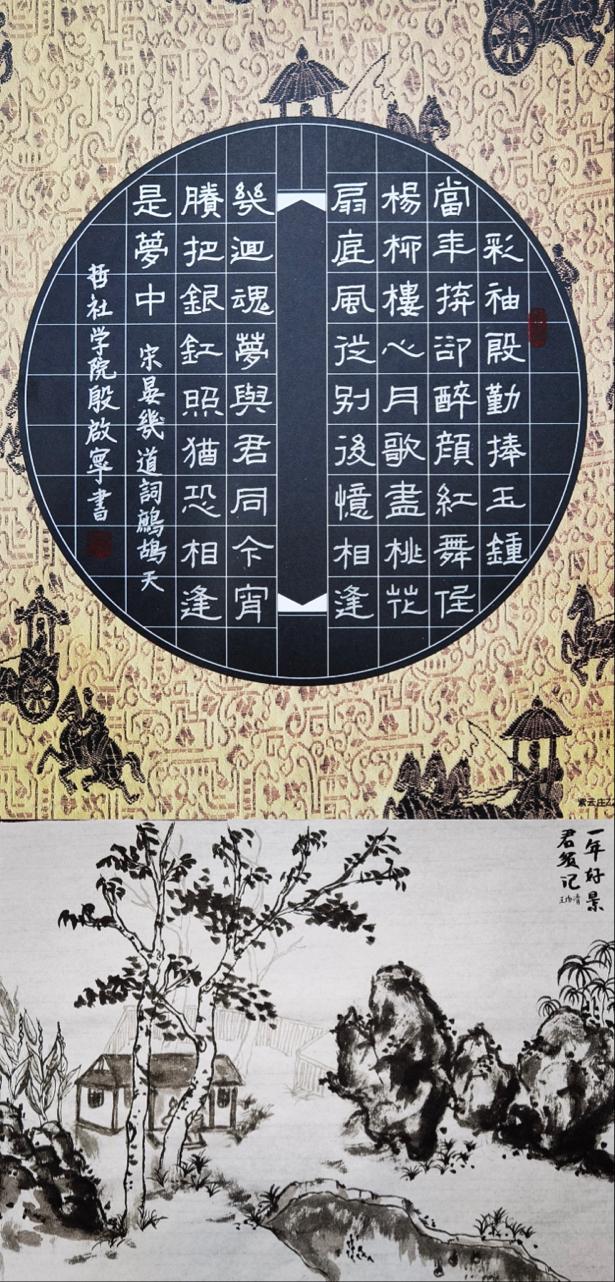 彩袖殷勤捧玉鍾
當年拚卻醉顔紅舞低
楊柳樓心月歌盡桃花
扇底風從别後憶相逢
幾迴魂夢與君同今宵
賸把銀釭照猶恐相逢
是夢中 宋晏幾道詞鷓鴣天
哲社学院殷啟寧書
一年好景
君須记